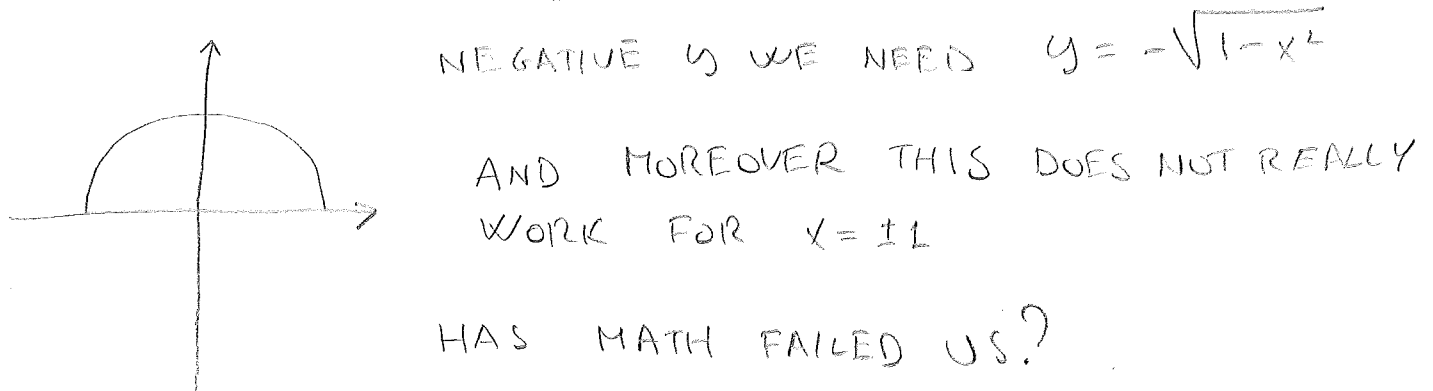 NEGATIVE y WE NEED y = -√(1-x²)
AND MOREOVER THIS DOES NOT REALLY
WORK FOR x = ±1
HAS MATH FAILED US?